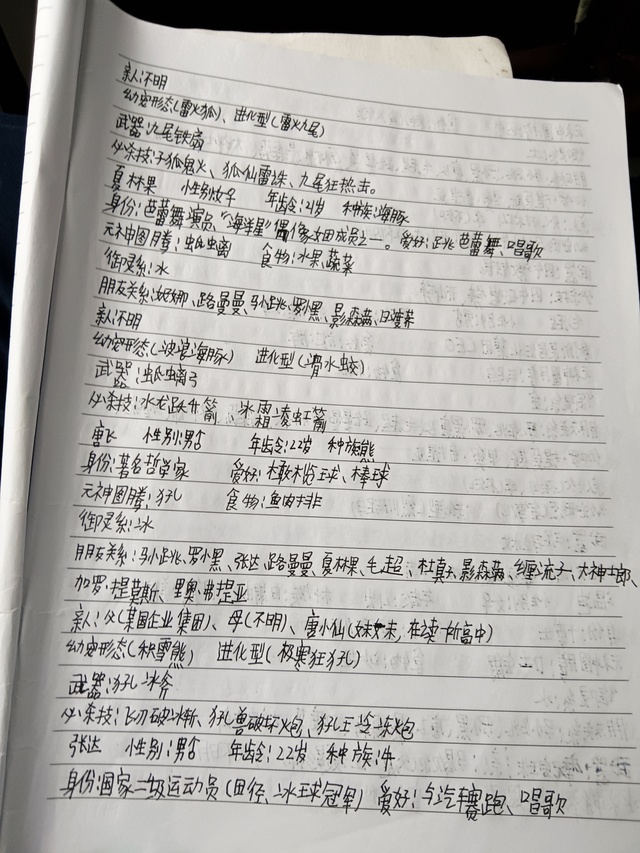 亲人:不明
幼宠形态(雷火狐)、进化型(雷火九尾)
武器:九尾铁扇
必杀技:子狐鬼火、狐仙雷诛、九尾狂热击。
夏林果 性别:女子 年龄:21岁 种族:海豚
身份:芭蕾舞演员"海洋星"偶像女团成员之一。 爱好:跳芭蕾舞、唱歌
元神图腾:虬螭 食物:水果蔬菜
御灵系:冰
朋友关系:妮娜、路曼曼、马小跳、罗小黑、影森、日婆养
亲人:不明
幼宠形态(波浪海豚) 进化型(滑水蛟)
武器:虬螭弓
必杀技:水龙跃升箭、冰霜凌虹箭
唐飞 性别:男 年龄:22岁 种族:熊
身份:著名哲学家 爱好:橄榄球、棒球
元神图腾:犼 食物:鱼肉排
御灵系:冰
朋友关系:马小跳、罗小黑、张达、路曼曼、夏林果、毛超、杜真子、影森、缠流子、大神士郎、
加罗·提莫斯、里奥·弗提亚
亲人:父(某国企业集团)、母(不明)、唐小仙(妹妹,在读一所高中)
幼宠形态(积雪熊) 进化型(极寒狂犼)
武器:犼冰斧
必杀技:飞刃破冰斩、犼兽破坏炮、犼王冷冻炮
张达 性别:男 年龄:22岁 种族:牛
身份:国家一级运动员(田径、冰球冠军) 爱好:与汽车赛跑、唱歌